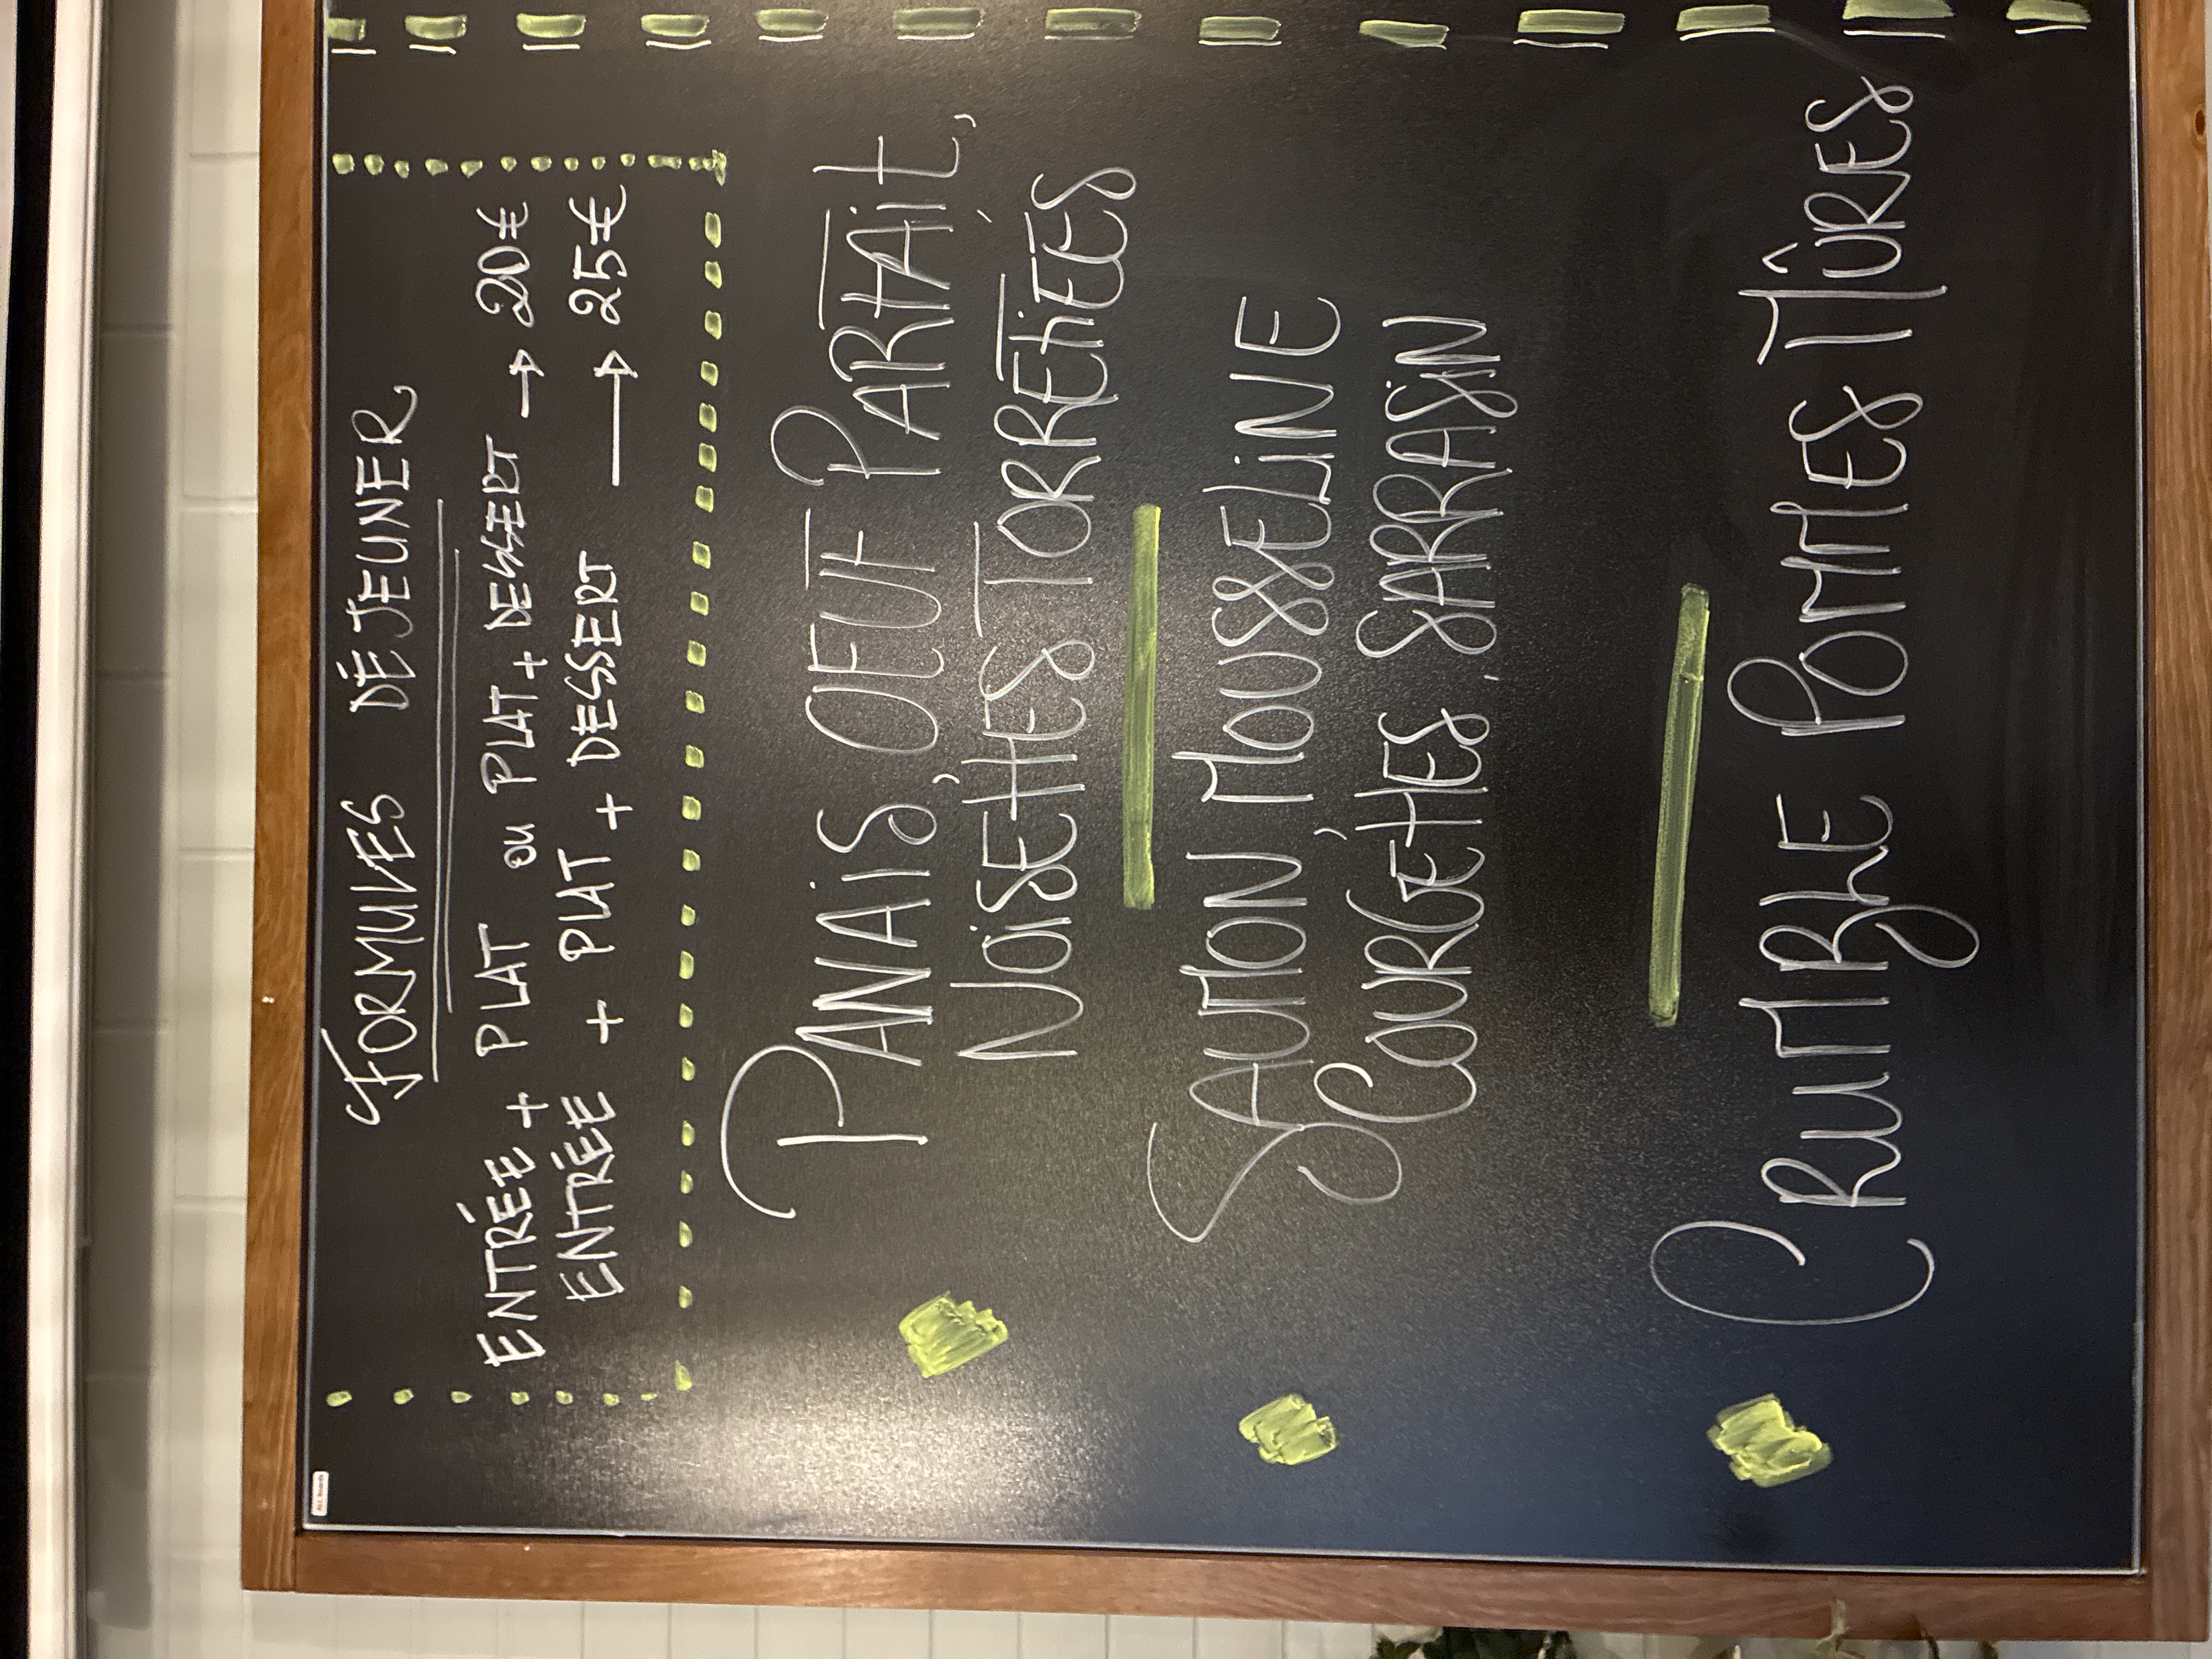 FORMULES DÉJEUNER
ENTRÉE + PLAT ou PLAT + DESSERT → 20€
ENTRÉE + PLAT + DESSERT → 25€
PANAIS, OEUF PARFAIT,
NOISETTES TORRÉFIÉES
SAUMON, MOUSSELINE
COURGETTES, SARRASIN
CRUMBLE POMMES MÛRES